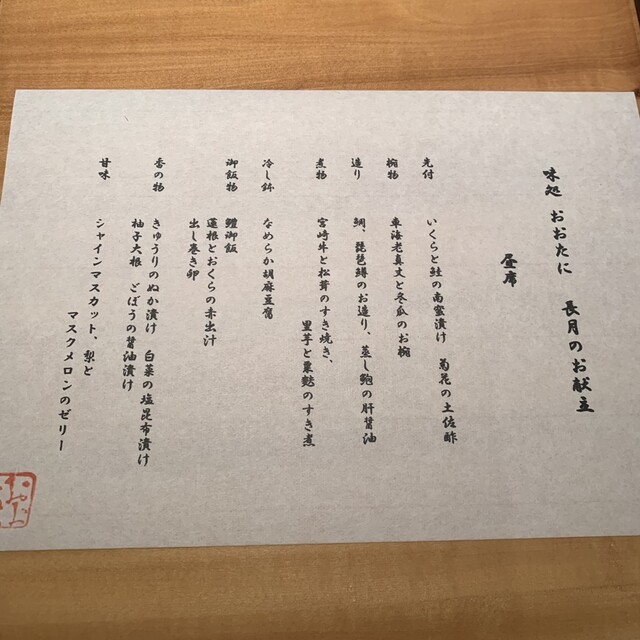 味処 おおたに 長月のお献立
昼席
先付 いくらと鮭の南蛮漬け 菊花の土佐酢
椀物 車海老真丈と冬瓜のお椀
造り 鯛、琵琶鱒のお造り、蒸し鮑の肝醤油
煮物 宮崎牛と松茸のすき焼き、
里芋と粟麩のすき煮
冷し鉢 なめらか胡麻豆腐
御飯物 鱧御飯
蓮根とおくらの赤出汁
出し巻き卵
香の物 きゅうりのぬか漬け 白菜の塩昆布漬け
柚子大根 ごぼうの醤油漬け
甘味 シャインマスカット、梨と
マスクメロンのゼリー